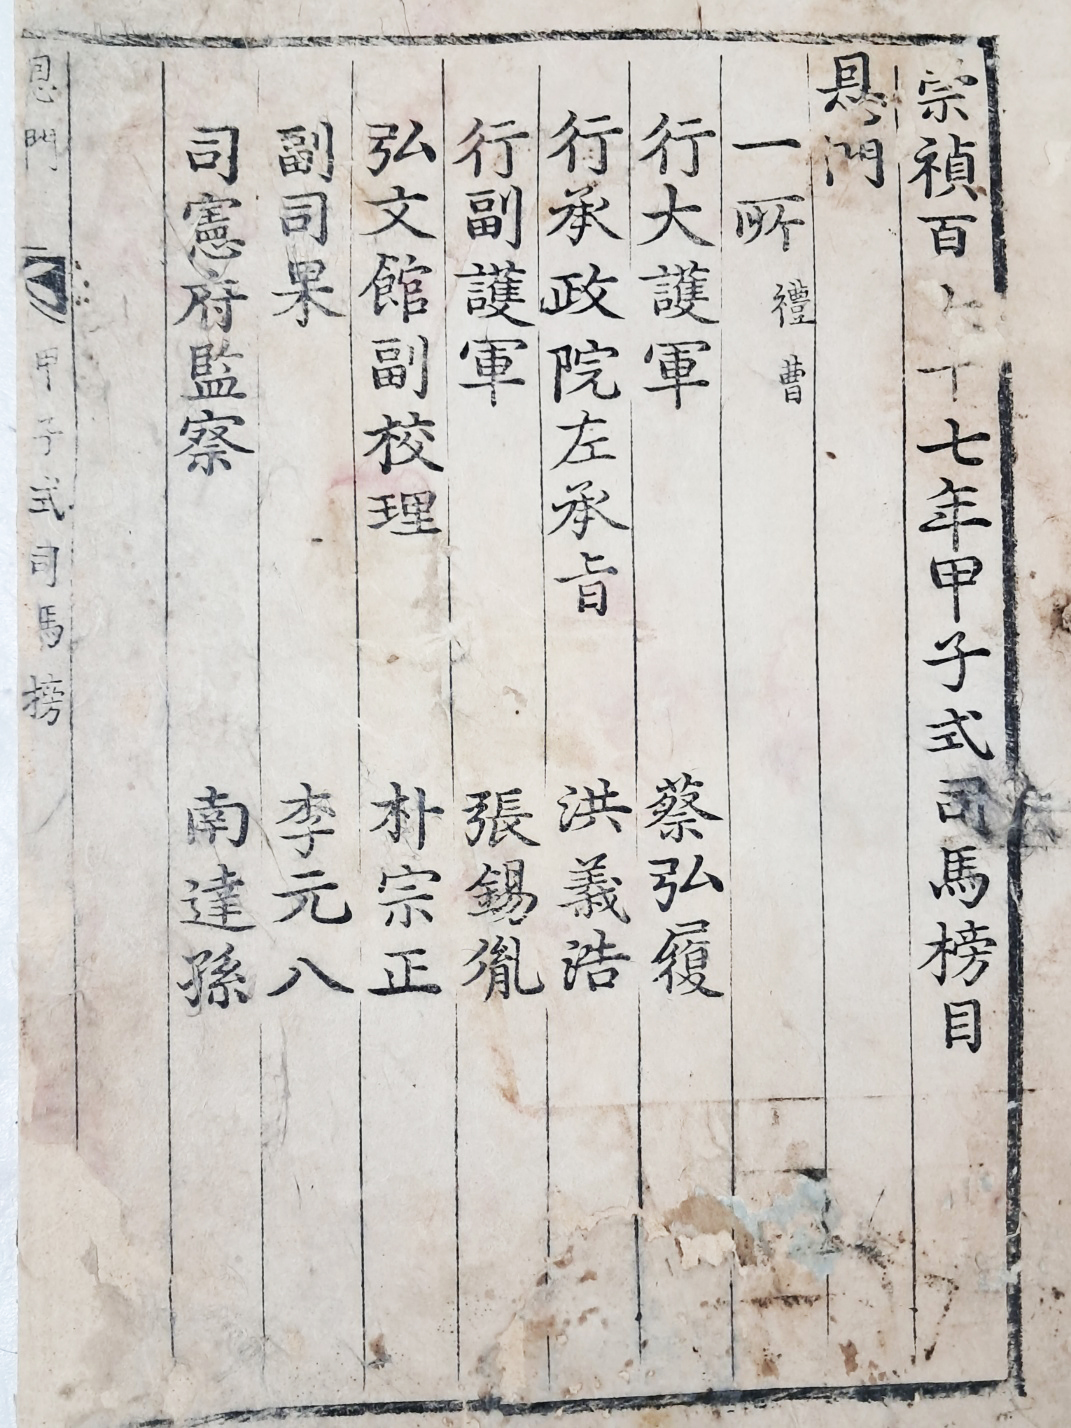 宗禎百七十七年甲子式司馬榜目
恩門
一所 禮曹
行大護軍 蔡弘履
行承政院左承旨 洪義浩
行副護軍 張錫胤
弘文館副校理 朴宗正
副司果 李元八
司憲府監察 南達孫
恩門 甲子式司馬榜